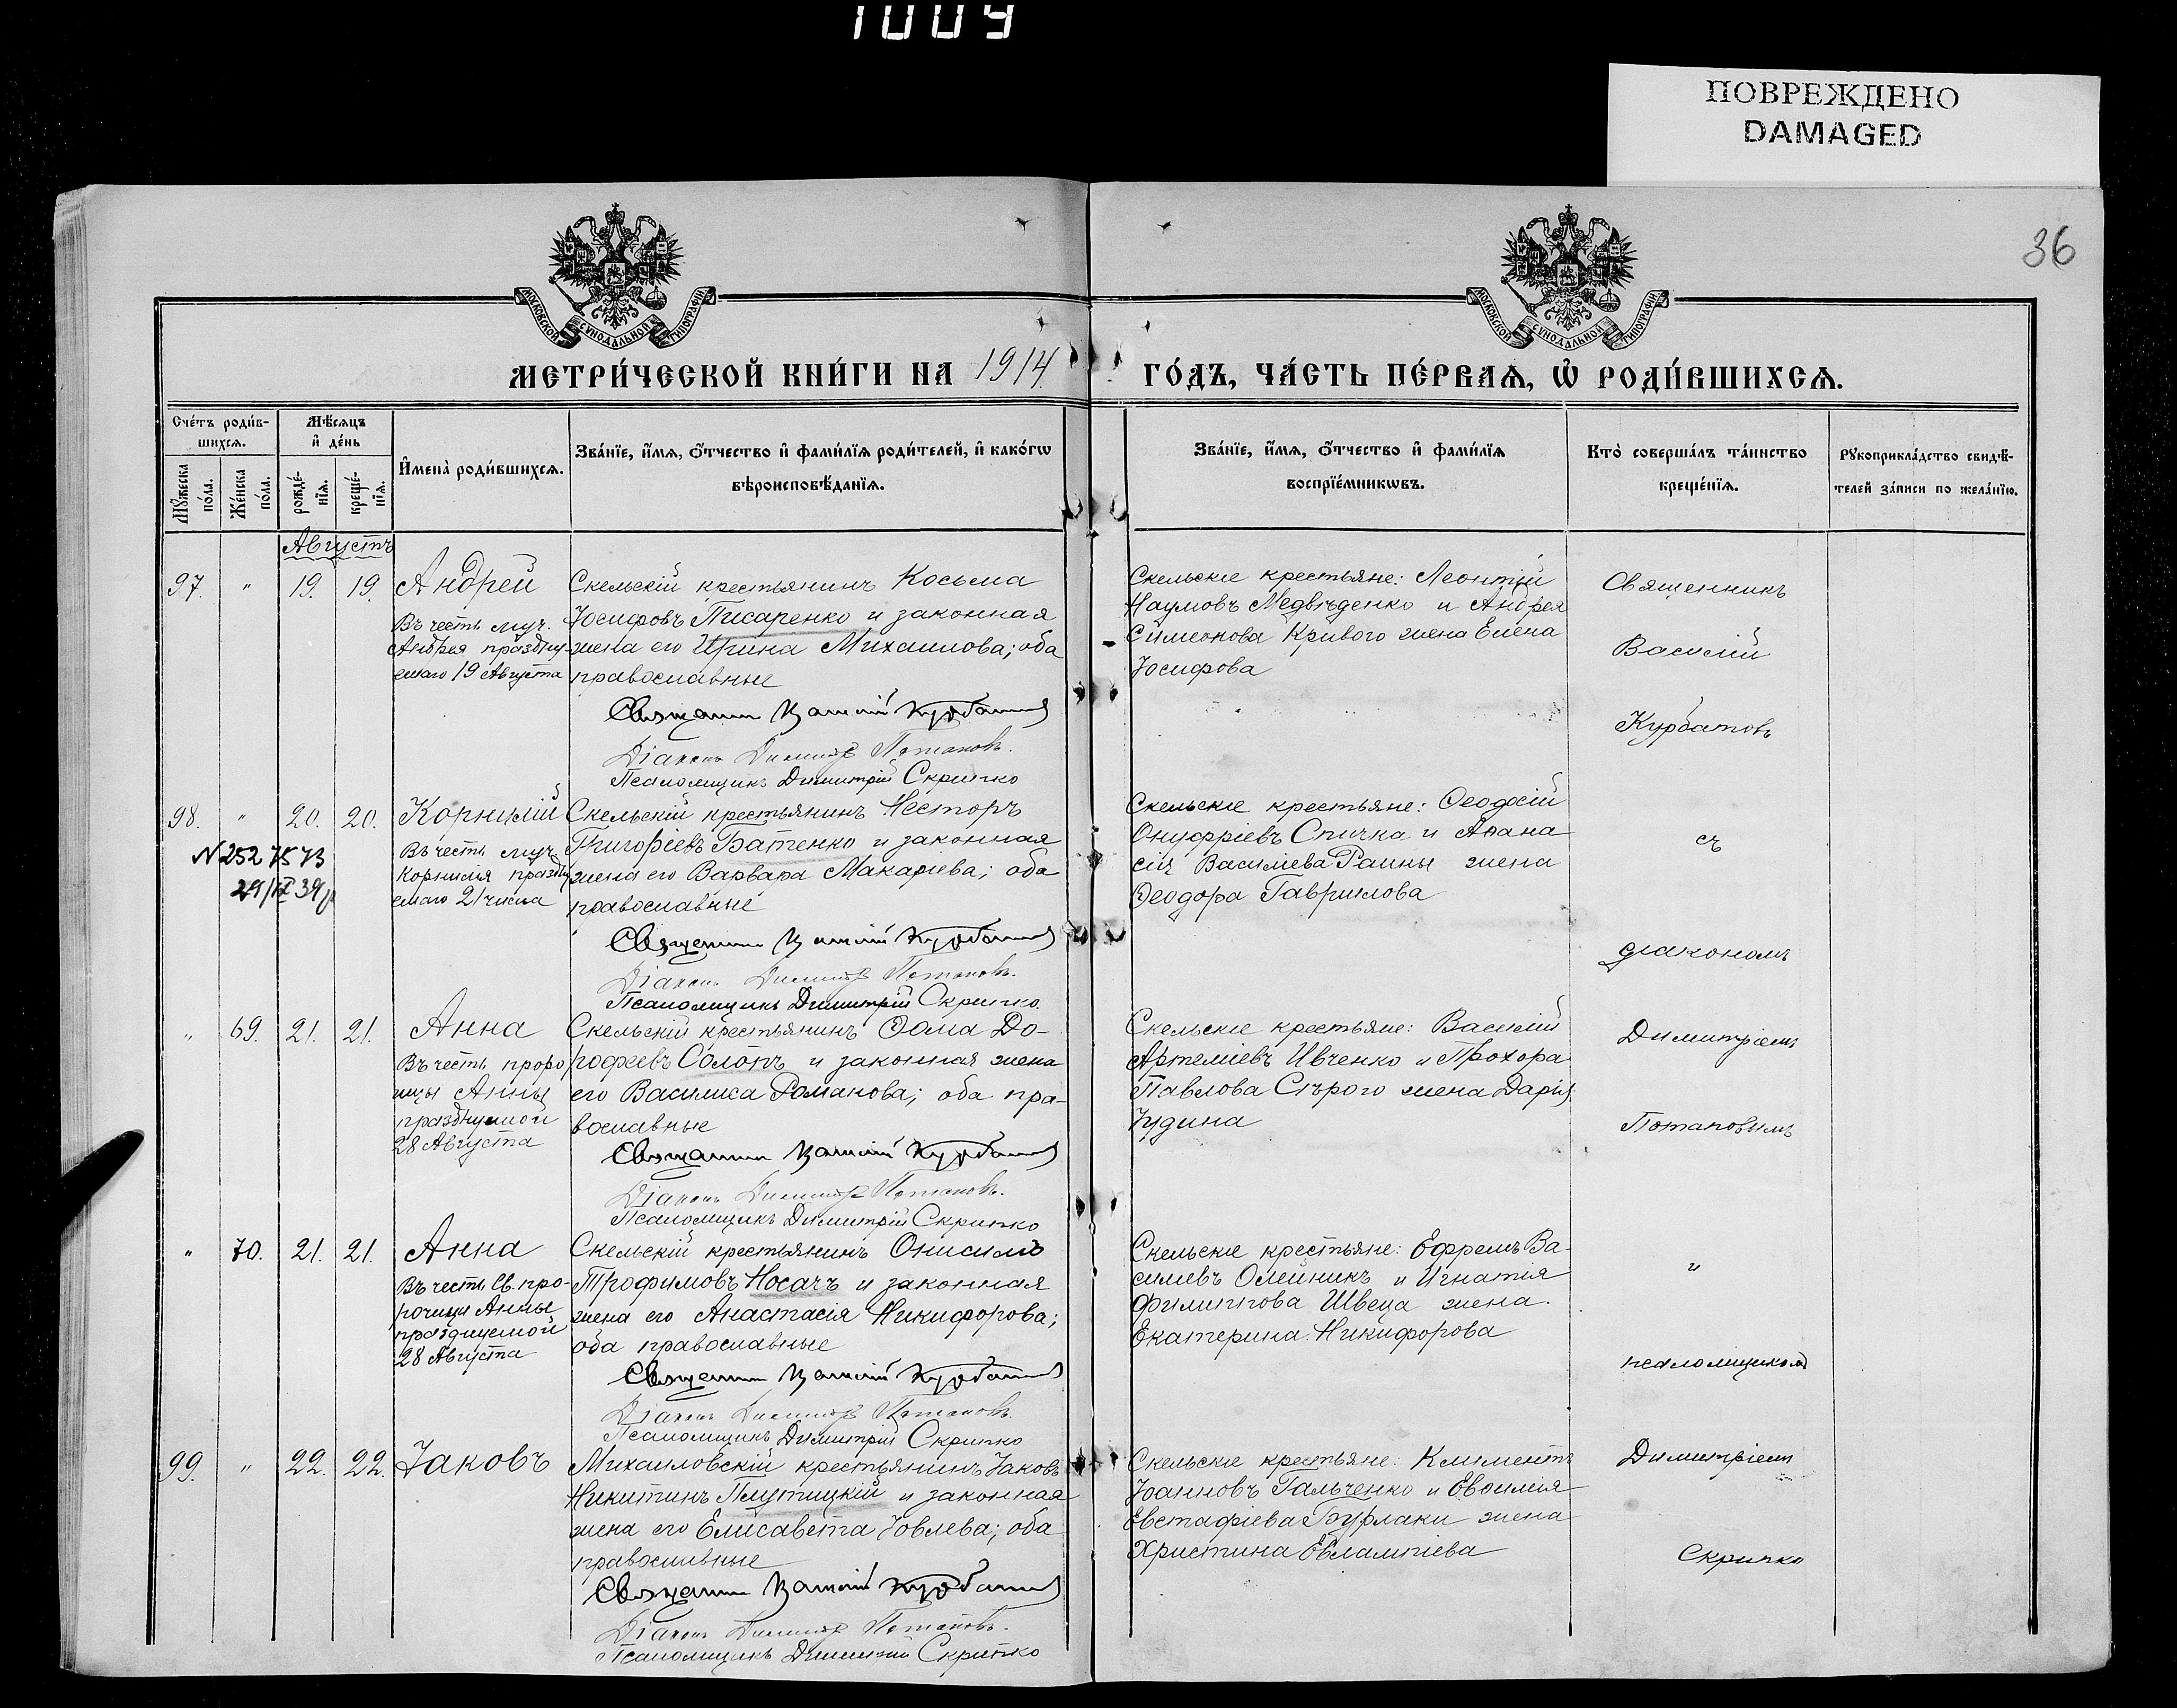 1009
ПОВРЕЖДЕНО
DAMAGED
36
МОСКОВСКОЙ СѴНОДАЛЬНОЙ ТИПОГРАФІИ
МОСКОВСКОЙ СѴНОДАЛЬНОЙ ТИПОГРАФІИ
МЕТРИ́ЧЕСКОЙ КНИ́ГИ НА 1914.
ГО́ДЪ, ЧА́СТЬ ПЕ́РВАѦ, Ѡ҆ РОДИ́ВШИХСѦ.
Сче́тъ роди́в-
шихсѧ.
Мꙋ́жеска по́ла.
Же́нска по́ла.
Мѣ́сѧцъ
и҆ де́нь
рожде́-
нїѧ.
креще́-
нїѧ.
И҆мена̀ роди́вшихсѧ.
Зва́нїе, и҆́мѧ, ѻ҆́тчество и҆ фами́лїѧ роди́телей, и҆ како́гѡ
вѣроисповѣ́данїѧ.
Зва́нїе, и҆́мѧ, ѻ҆́тчество и҆ фами́лїѧ
воспрїе́мникѡвъ.
Кто̀ соверша́лъ та́инство
креще́нїѧ.
Рꙋкоприкла́дство свидѣ́-
телей за́писи по жела́нїю.
Августъ
97. " 19. 19. Андрей
Въ честь муч.
Андрея праздну-
емаго 19 Августа
Скельскій крестьянинъ Косьма
Іосифовъ Писаренко и законная
жена его Ирина Михаилова; оба
православные
Священник Василій Курбатов
Діаконъ Димитр Потаповъ.
Псаломщикъ Димитрій Скрипко
Скельскіе крестьяне: Леонтій
Наумовъ Медвѣденко и Андрея
Симеонова Кривого жена Елена
Іосифова
Священникъ
Василій
Курбатовъ
съ
діакономъ
Димитріемъ
Потаповымъ
и
псаломщикомъ
Димитріемъ
Скрипко
98. " 20. 20. Корнилій
N 252 7573
Въ честь муч.
Корнилія праздну
емаго 21 числа
Скельскій крестьянинъ Несторъ
Григоріевъ Батенко и законная
жена его Варвара Макаріева; оба
православные
Священник Василій Курбатов
Діаконъ Димитр Потаповъ.
Псаломщикъ Димитрій Скрипко.
Скельскіе крестьяне: Ѳеодосій
Онуфріевъ Спичка и Аѳана
сія Василіева Раины жена
Ѳеодора Гавриилова
" 69. 21. 21. Анна
Въ честь проро
чицы Анны
празднуемой
28 Августа
Скельскій крестьянинъ Ѳома До-
роѳеевъ Солопъ и законная жена
его Василиса Романова; оба пра-
вославные
Священник Василій Курбатов
Діаконъ Димитр Потаповъ.
Псаломщикъ Димитрій Скрипко
Скельскіе крестьяне: Василій
Артеміевъ Ивченко и Прохора
Павлова Сѣрого жена Дарія
Іудина
" 70. 21. 21. Анна
Въ честь Св. про-
рочицы Анны
празднуемой
28 Августа
Скельскій крестьянинъ Онисимъ
Трофимовъ Носачъ и законная
жена его Анастасія Никифорова;
оба православные
Священник Василій Курбатов
Діаконъ Димитр Потаповъ.
Псаломщикъ Димитрій Скрипко
Скельскіе крестьяне: Ефремъ Ва-
силіевъ Олейникъ и Игнатія
Филиппова Швеца жена
Екатерина Никифорова
99. " 22. 22. Іаковъ
Михаиловскій крестьянинъ Іаковъ
Никитинъ Плутицкій и законная
жена его Елисавета Іовлева; оба
православные
Священник Василій Курбатов
Діаконъ Димитр Потаповъ.
Псаломщикъ Димитрій Скрипко
Скельскіе крестьяне: Климентъ
Іоанновъ Гальченко и Евѳимія
Евстафіева Бурлаки жена
Христина Евлампіева